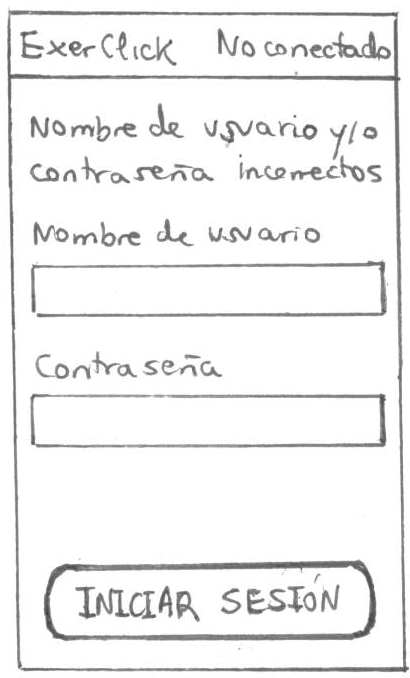 ExerClick No conectado
Nombre de usuario y/o
contraseña incorrectos
Nombre de usuario
Contraseña
INICIAR SESIÓN